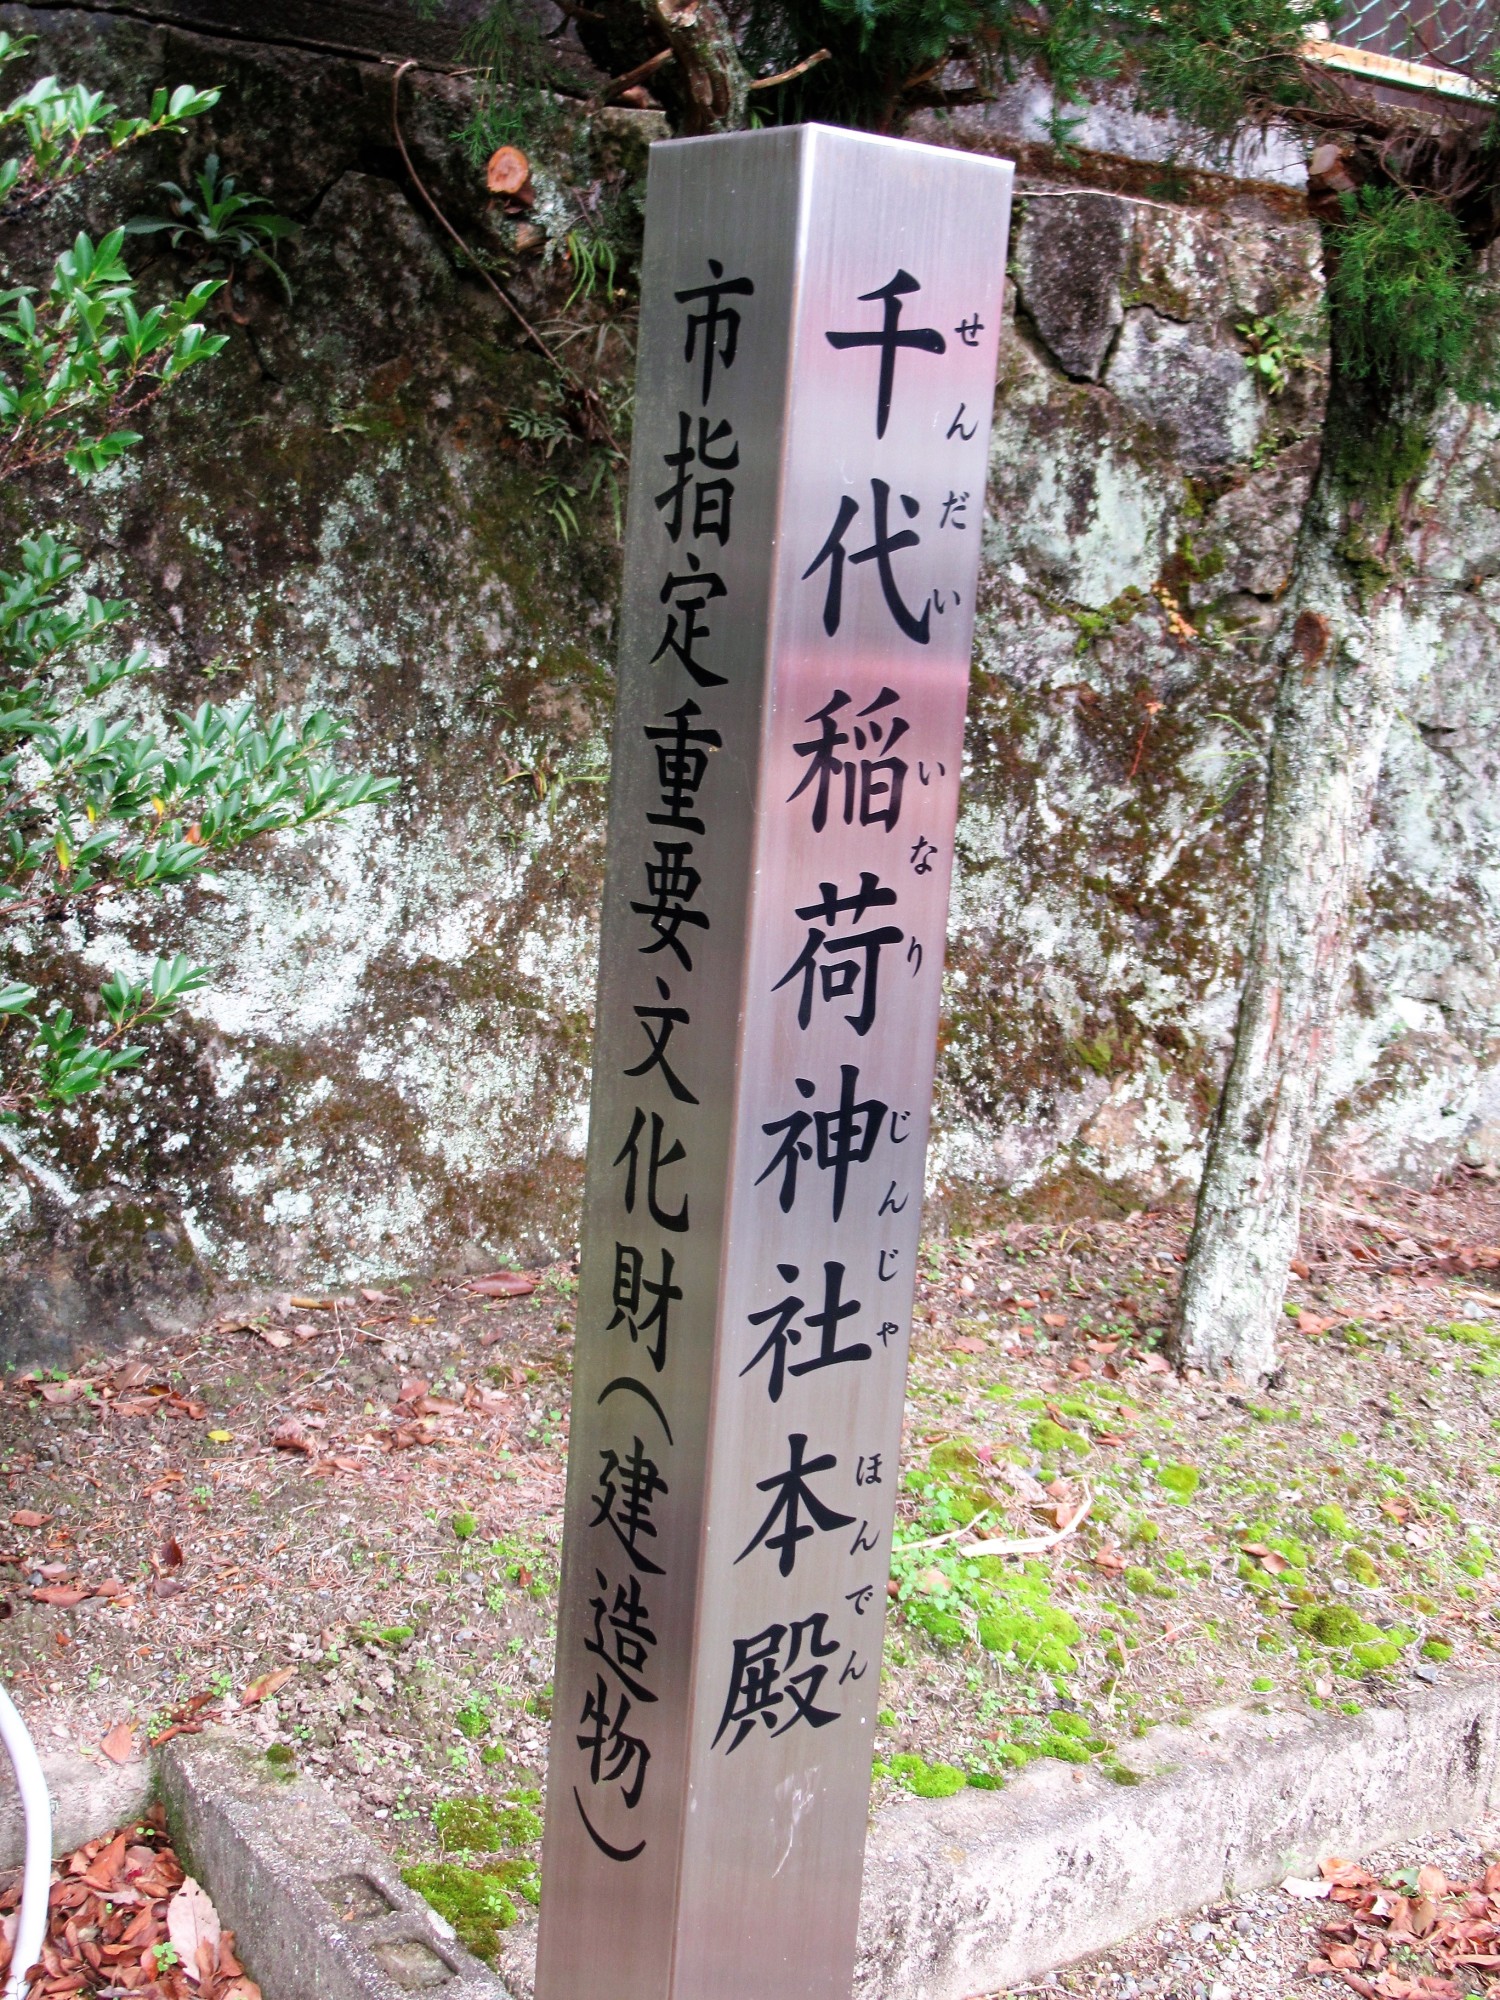 千代稲荷神社本殿
せんだいいなりじんじゃほんでん
市指定重要文化財(建造物)